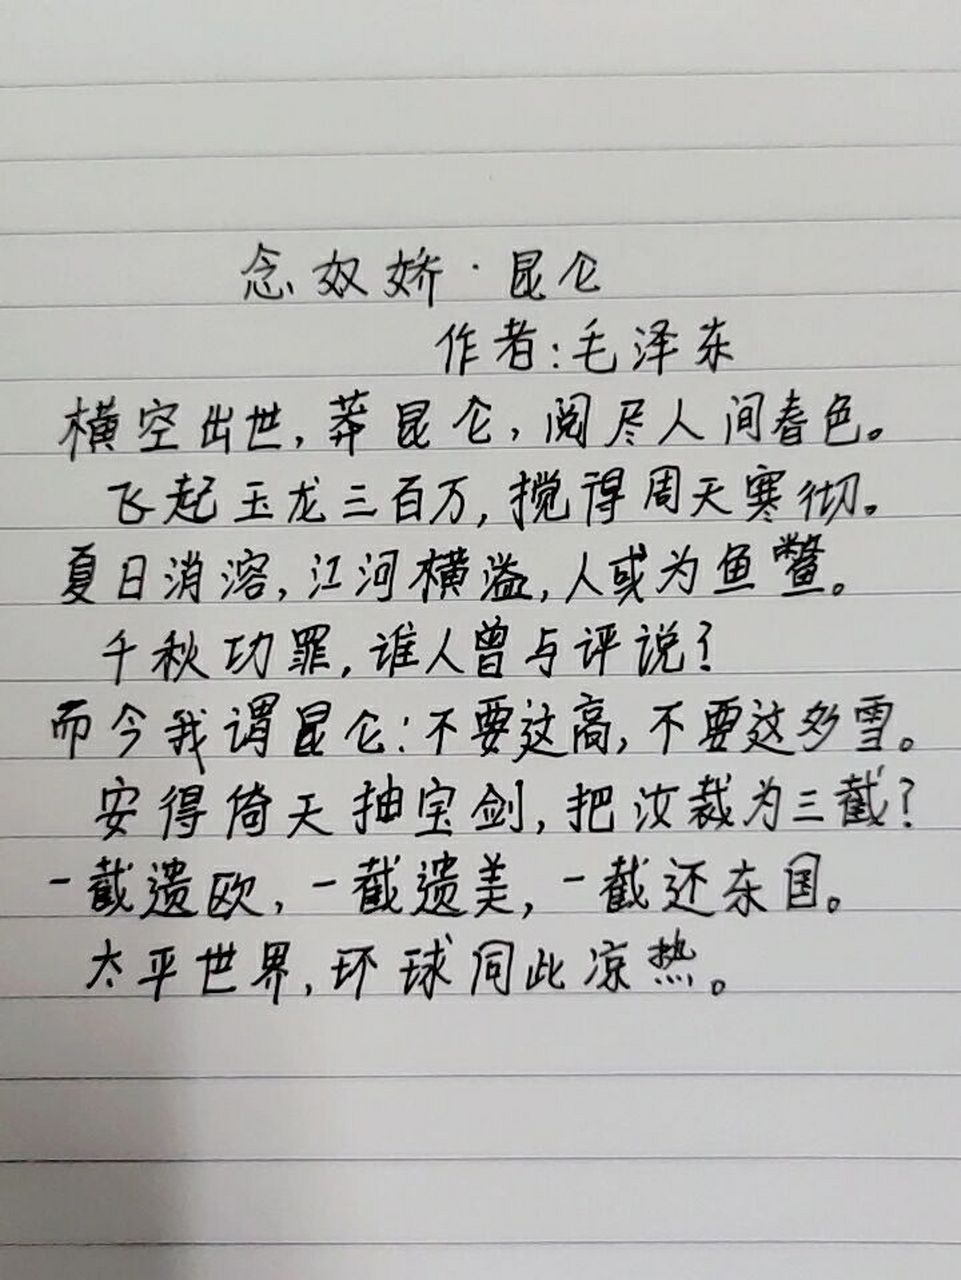 念奴娇·昆仑
作者:毛泽东
横空出世,莽昆仑,阅尽人间春色。
飞起玉龙三百万,搅得周天寒彻。
夏日消溶,江河横溢,人或为鱼鳖。
千秋功罪,谁人曾与评说?
而今我谓昆仑:不要这高,不要这多雪。
安得倚天抽宝剑,把汝裁为三截?
一截遗欧,一截遗美,一截还东国。
太平世界,环球同此凉热。